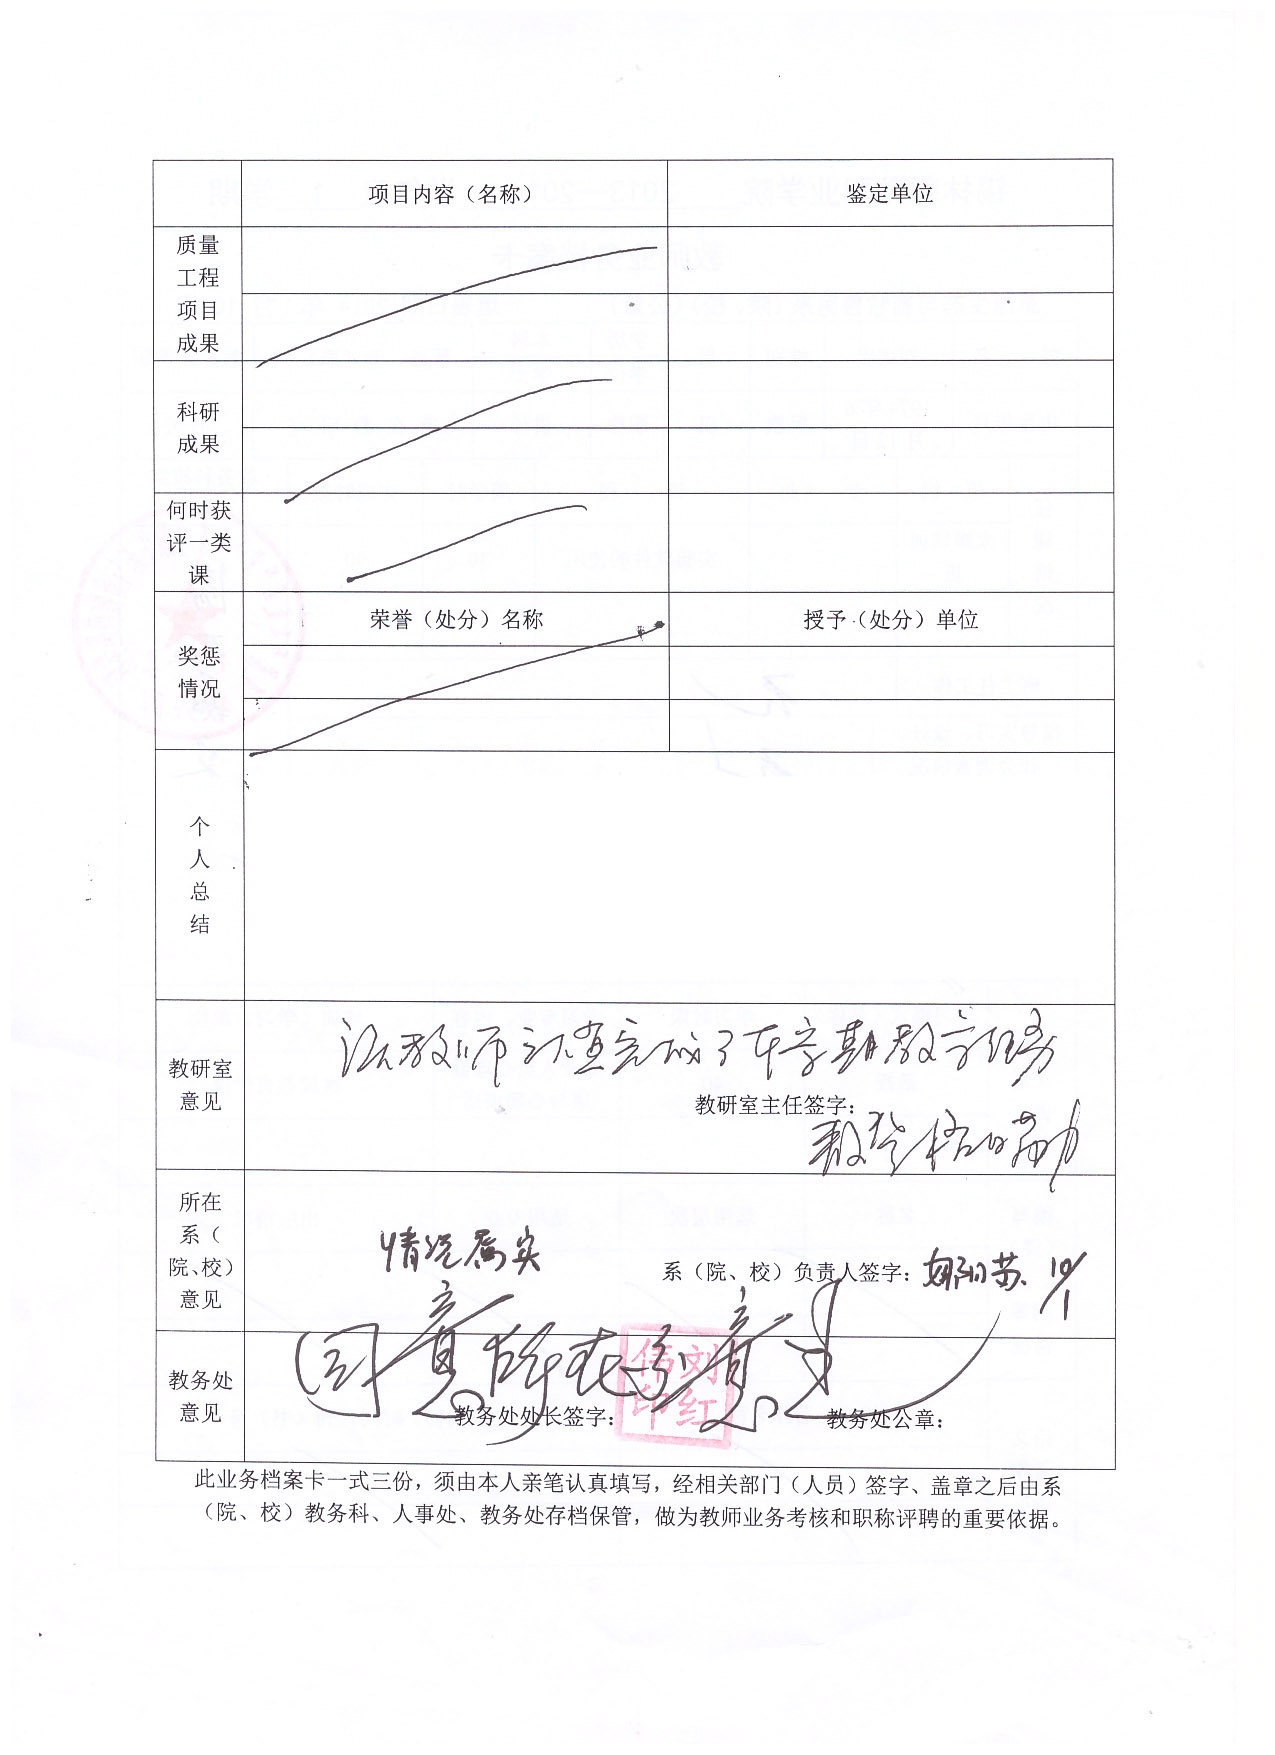 项目内容（名称） 鉴定单位
质量
工程
项目
成果
科研
成果
何时获
评一类
课
奖惩
情况
荣誉（处分）名称 授予（处分）单位
个
人
总
结
教研室
意见
该教师认真完成了本学期教学任务
教研室主任签字：
所在
系（
院、校）
意见
情况属实
系（院、校）负责人签字： 10/1
教务处
意见
刘红伟印
教务处处长签字： 教务处公章：
此业务档案卡一式三份，须由本人亲笔认真填写，经相关部门（人员）签字、盖章之后由系
（院、校）教务科、人事处、教务处存档保管，做为教师业务考核和职称评聘的重要依据。